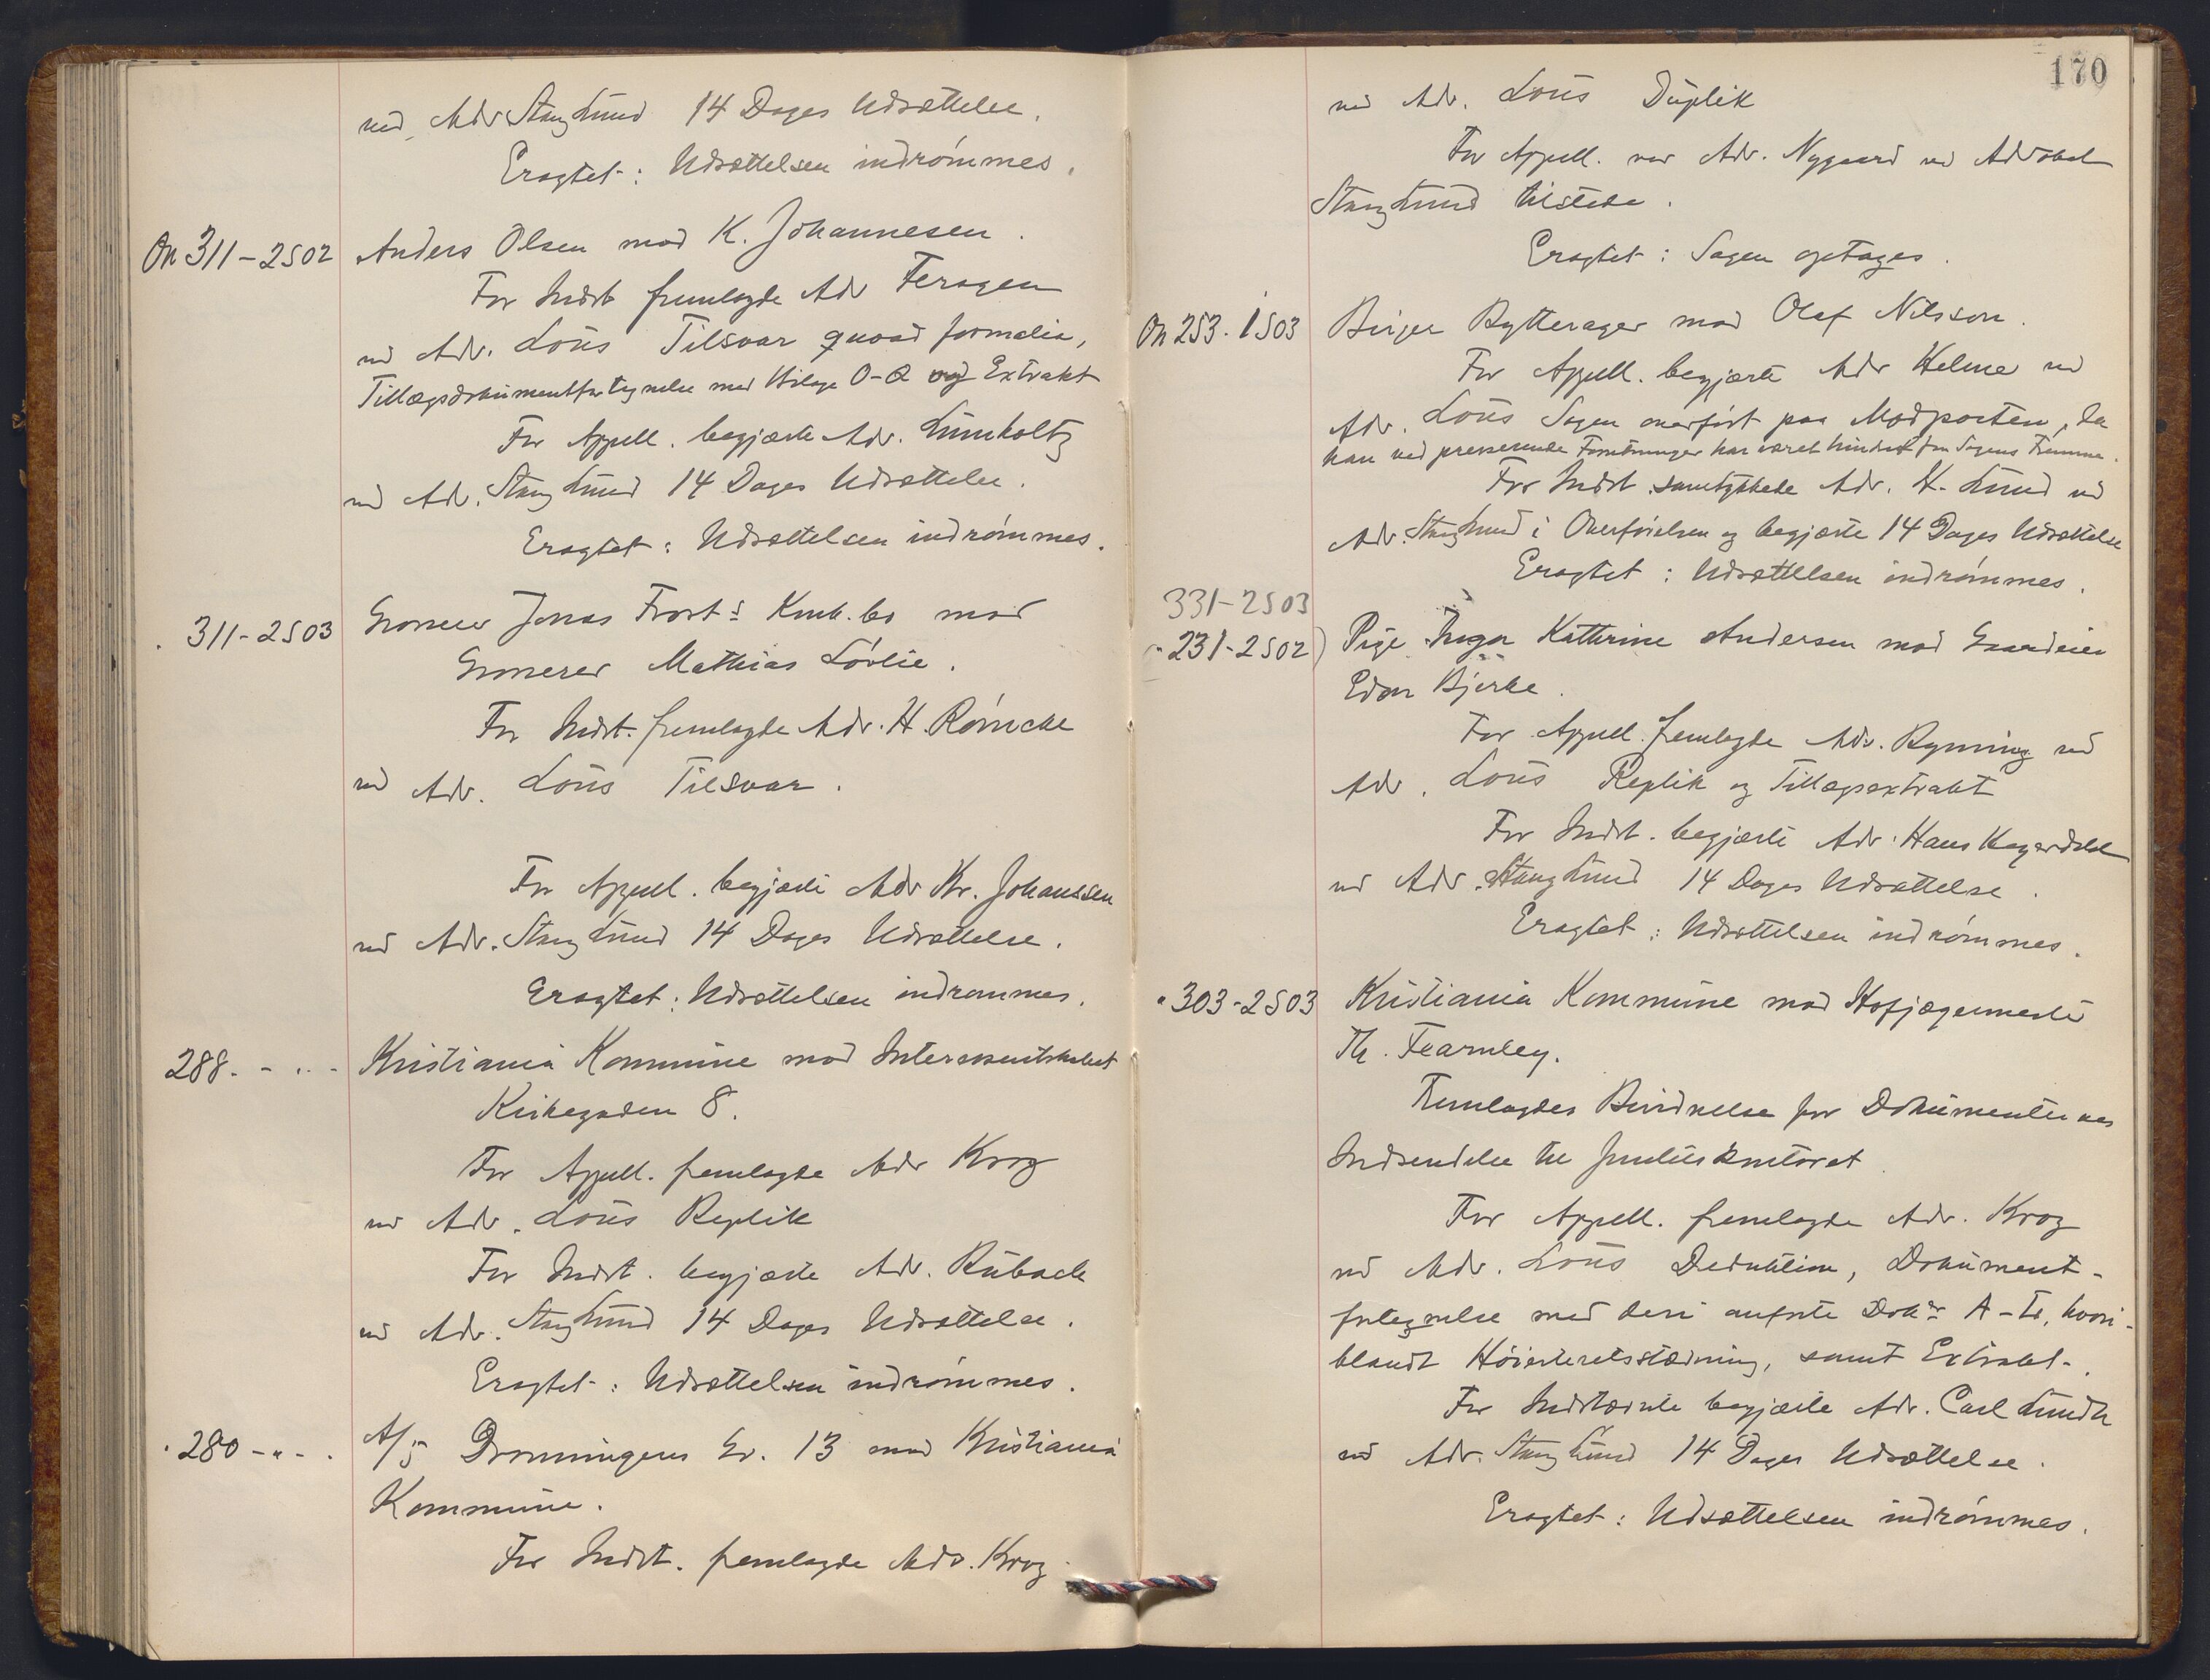 ved Adv. Stang Lund 14 Dages Udsættelse.
Eragtet: Udsættelsen indrømmes.
On 311-2502 Anders Olsen mod K. Johannesen.
For Indst fremlagde Adv Feragen
ved Adv. Lous Tilsvar quoad formalia,
Tillægsdokumentfortegnelse med Bilage O-Q og Extrakt
For Appell. begjærte Adv. Lumholtz
ved Adv. Stang Lund 14 Dages Udsættelse.
Eragtet: Udsættelsen indrømmes.
311-2503 Grosserer Jonas Frost's Konk.bo mod
Grosserer Mathias Løvlie.
For Indst. fremlagde Adv. H. Römcke
ved Adv. Lous Tilsvar.
For Appell. begjærte Adv Kr. Johanssen
ved Adv. Stang Lund 14 Dages Udsættelse.
Eragtet: Udsættelsen indrømmes.
288. - " - Kristiania Kommune mod Interessentskabet
Kirkegaden 8.
For Appell. fremlagde Adv Krog
ved Adv. Lous Replik
For Indst. begjærte Adv. Rubach
ved Adv. Stang Lund 14 Dages Udsættelse.
Eragtet: Udsættelsen indrømmes.
280 - " - A/S Dronningens Gt. 13 mod Kristiania
Kommune.
For Indst. fremlagde Adv. Krog
170
ved Adv. Lous Duplik
For Appell. var Adv. Nygaard ved Advokat
Stang Lund tilstede.
Eragtet: Sagen optages.
On 253. 1503 Birger Rytterager mod Olaf Nilsson.
For Appell. begjærte Adv Helme ved
Adv. Lous Sagen overført paa Modparten, da
han ved presserende Forretninger har været hindret fra Sagens Fremme.
For Indst. samtykkede Adv. K. Lund ved
Adv. Stang Lund i Overførelsen og begjærte 14 Dages Udsættelse
Eragtet: Udsættelsen indrømmes.
331-2503
" 231-2502) Pige Inga Kathrine Andersen mod Gaardeier
Edvar Bjerke.
For Appell. fremlagde Adv. Ryning ved
Adv. Lous Replik og Tillægsextrakt
For Indst. begjærte Adv. Hans
ved Adv. Stang Lund 14 Dages Udsættelse.
Eragtet: Udsættelsen indrømmes.
" 303-2503 Kristiania Kommune mod Hofjægermester
Th. Fearnley.
Fremlagdes Bevidnelse for Dokumenternes
Indsendelse til Justitskontoret.
For Appell. fremlagde Adv. Krog
ved Adv. Lous Deduktion, Dokument-
fortegnelse med deri anførte Dok.er A- hvori-
blandt Høiesteretsstævning, samt Extrakt.
For Indstævnte begjærte Adv. Carl Lundh
ved Adv. Stang Lund 14 Dages Udsættelse.
Eragtet: Udsættelsen indrømmes.